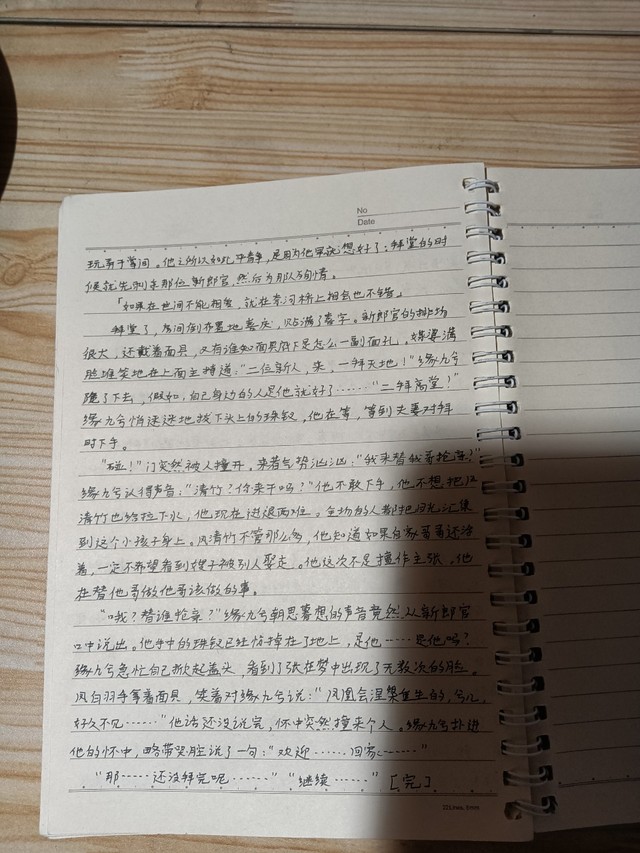 No
Date
玩弄于掌间。他之所以如此平静,是因为他早就想好了:拜堂的时
候就先刺杀那位新郎官,然后为那人殉情。
「如果在世间不能相爱,就在奈河桥上相会也不错」
拜堂了,房间倒布置地喜庆,贴满了喜字。新郎官的排场
很大,还戴着面具,又有谁知面具底下是怎么一副面孔。媒婆满
脸堆笑地在上面主持道:"二位新人,来,一拜天地!"缘九兮
跪了下去,假如,自己身边的人是他就好了……"二拜高堂?"
缘九兮悄迷迷地拔下头上的珠钗,他在等,等到夫妻对拜
时下手。
"碰!"门突然被人撞开,来者气势汹汹:"我来替我哥抢亲?"
缘九兮认得声音:"清竹?你来干吗?"他不敢下手,他不想把风
清竹也给拉下水,他现在进退两难。全场的人都把目光汇集
到这个小孩子身上。风清竹不管那么多,他知道如果自家哥哥还活
着,一定不希望看到嫂子被别人娶走。他这次不是擅作主张,他
在替他哥做他哥该做的事。
"哦?替谁抢亲?"缘九兮朝思暮想的声音竟然从新郎官
口中说出。他手中的珠钗已经悄掉在了地上,是他……是他吗?
缘九兮急忙自己掀起盖头,看到了张在梦中出现了无数次的脸。
风白羽手拿着面具,笑着对缘九兮说:"凤凰会涅槃重生的,兮儿,
好久不见……"他话还没说完,怀中突然撞来个人。缘九兮扑进
他的怀中,略带哭腔说了一句:"欢迎……回家……"
"那……还没拜完呢……" "继续……" [完]